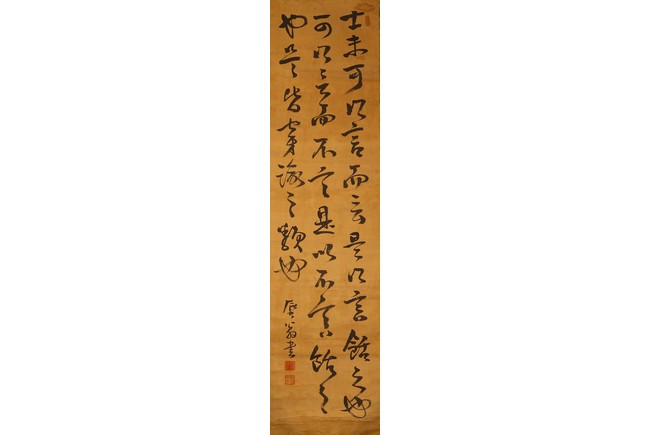 士未可以言而言是以言餂之也
可以言而不言是以不言餂之
也是皆穿踰之類也
翁書